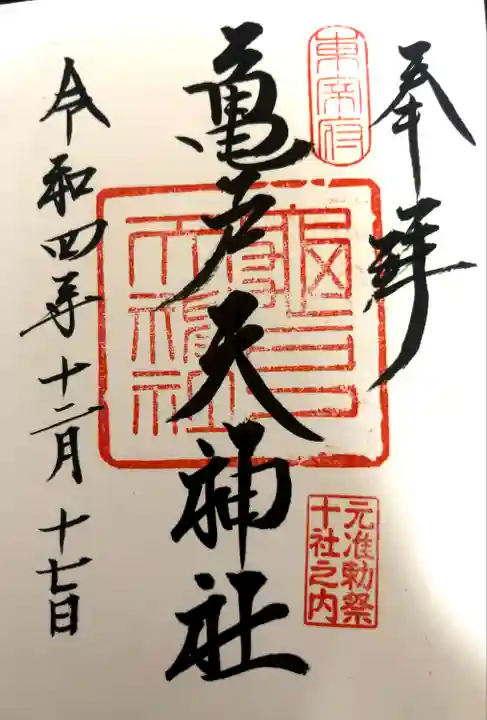 奉拝
東宰府
亀戸天神社
亀戸天神社
元准勅祭
十社之内
令和四年十二月十七日